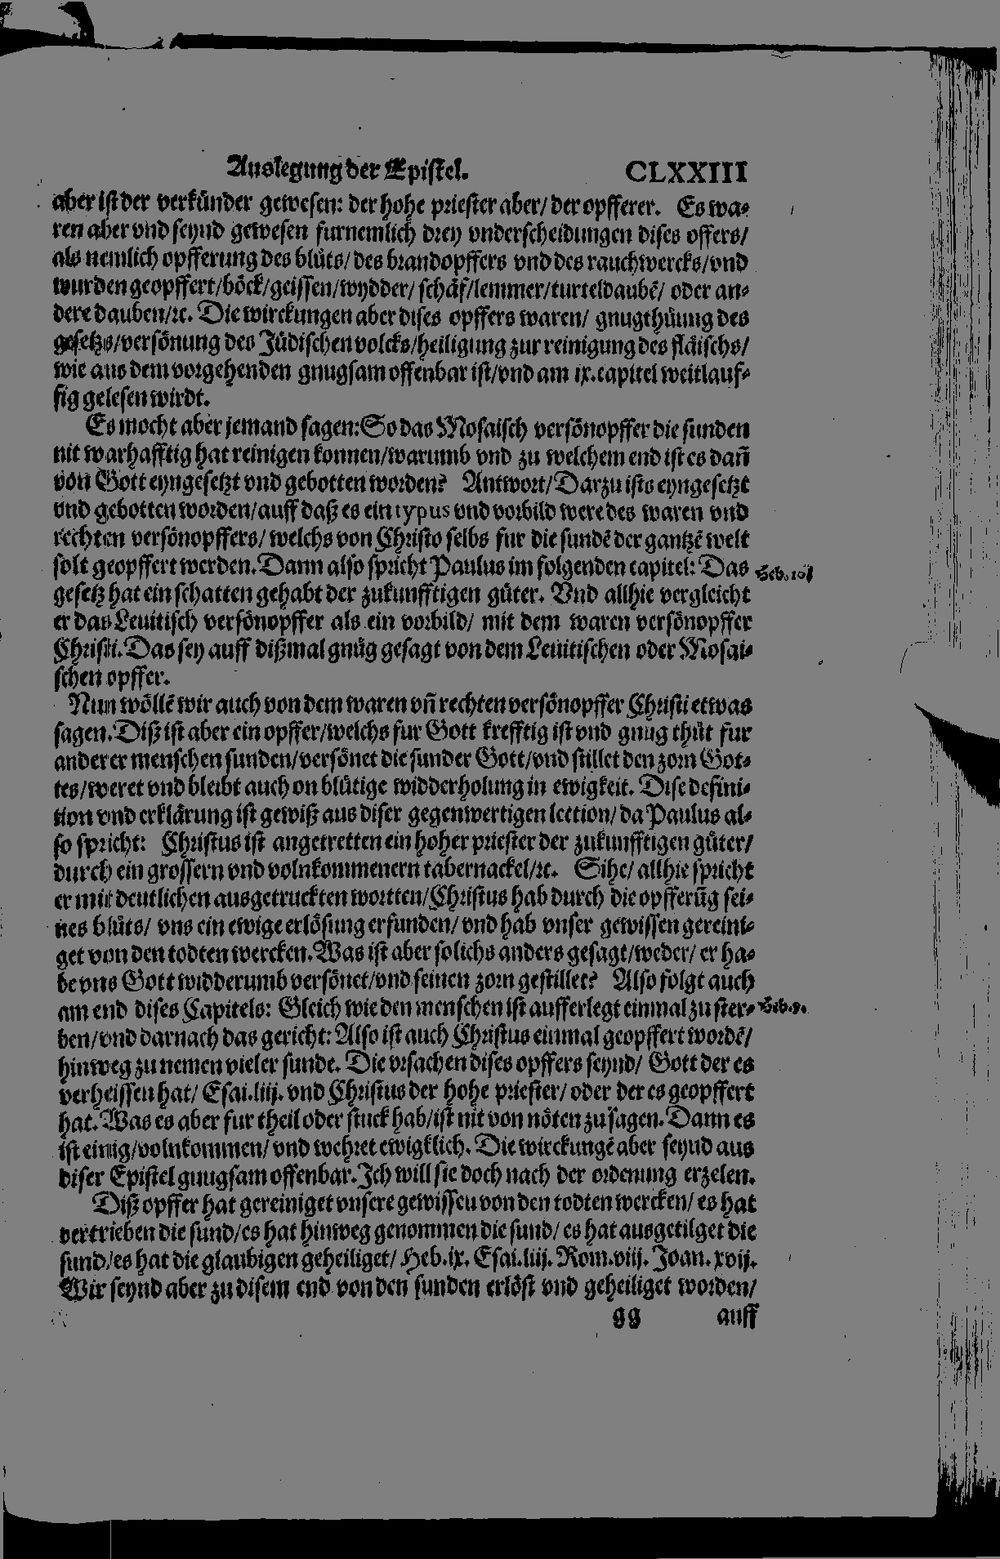 Auslegung der Epistel. CLXXIII
aber ist der verkünder gewesen: der hohe priester aber/ der opfferer. Es wa-
ren aber vnd seynd gewesen furnemlich drey vnderscheidungen dises offers/
als nemlich opfferung des blůts/ des brandopffers vnd des rauchwercks/ vnd
wurden geopffert/ böck/ geissen/ wydder/ schäf/ lemmer/ turteldaubē/ oder an-
dere dauben/ ꝛc. Die wirckungen aber dises opffers waren/ gnugthüung des
gesetzs/ versönung des Jüdischen volcks/ heiligung zur reinigung des fläischs/
wie aus dem vorgehenden gnugsam offenbar ist/ vnd am ix. capitel weitlauf-
fig gelesen wirdt.
Es mocht aber jemand sagen: So das Mosaisch versönopffer die sunden
nit warhafftig hat reinigen konnen/ warumb vnd zu welchem end ist es dañ
von Gott eyngesetzt vnd gebotten worden? Antwort/ Darzu ists eyngesetzt
vnd gebotten worden/ auff daß es ein typus vnd vorbild were des waren vnd
rechten versönopffers/ welchs von Christo selbs fur die sundē der gantzē welt
solt geopffert werden. Dann also spricht Paulus im folgenden capitel: Das
Heb. 10.
gesetz hat ein schatten gehabt der zukunfftigen güter. Vnd allhie vergleicht
er das Leuitisch versönopffer als ein vorbild/ mit dem waren versönopffer
Christi. Das sey auff dißmal gnůg gesagt von dem Leuitischen oder Mosai-
schen opffer.
Nun wöllē wir auch von dem waren vñ rechten versönopffer Christi etwas
sagen. Diß ist aber ein opffer/ welchs fur Gott krefftig ist vnd gnug thůt fur
anderer menschen sunden/ versönet die sunder Gott/ vnd stillet den zorn Got-
tes/ weret vnd bleibt auch on blůtige widderholung in ewigkeit. Dise defini-
tion vnd erklärung ist gewiß aus diser gegenwertigen lection/ da Paulus al-
so spricht: Christus ist angetretten ein hoher priester der zukunfftigen güter/
durch ein grossern vnd volnkommenern tabernackel/ ꝛc. Sihe/ allhie spricht
er mit deutlichen ausgetruckten wortten/ Christus hab durch die opfferūg sei-
nes blůts/ vns ein ewige erlösung erfunden/ vnd hab vnser gewissen gereini-
get von den todten wercken. Was ist aber solichs anders gesagt/ weder/ er ha-
be vns Gott widderumb versönet/ vnd seinen zorn gestillet? Also folgt auch
am end dises Capitels: Gleich wie den menschen ist aufferlegt einmal zu ster-
Heb. 9.
ben/ vnd darnach das gericht: Also ist auch Christus einmal geopffert wordē/
hinweg zu nemen vieler sunde. Die vrsachen dises opffers seynd/ Gott der es
verheissen hat/ Esai. liij. vnd Christus der hohe priester/ oder der es geopffert
hat. Was es aber fur theil oder stuck hab/ ist nit von nöten zu sagen. Dann es
ist einig/ volnkommen/ vnd wehret ewigklich. Die wirckungē aber seynd aus
diser Epistel gnugsam offenbar. Ich will sie doch nach der ordenung erzelen.
Diß opffer hat gereiniget vnsere gewissen von den todten wercken/ es hat
vertrieben die sund/ es hat hinweg genommen die sund/ es hat ausgetilget die
sund/ es hat die glaubigen geheiliget/ Heb. ix. Esai. liij. Rom. viij. Joan. xvij.
Wir seynd aber zu disem end von den sunden erlöst vnd geheiliget worden/
gg auff